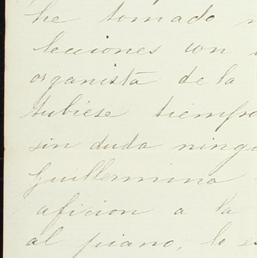 he tomado
lecciones con
organista de la
tubiese tiempo
sin duda ningu
Guillermina
aficion a la
al piano, le es